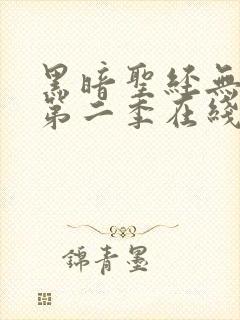 黑暗聖經無
第二季在綫
錦青墨